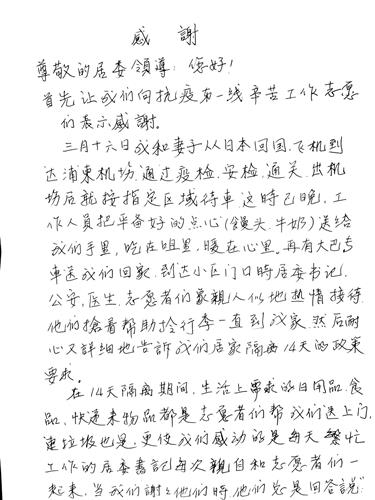 感 謝
尊敬的居委領導：您好！
首先让我们向抗疫第一线辛苦工作志愿
们表示感謝。
三月十六日我和妻子从日本回国，飞机到
达浦東机场，通过疫检、安检、通关，出机
场后就按指定区域待車，这時已晚，工
作人员把准备好的点心（馒头、牛奶）送给
我们手里，吃在咀里，暖在心里。再有大巴专
車送我们回家，到达小区门口時居委书记、
公安、医生、志愿者们象親人似地热情接待，
他们搶着帮助拎行李一直到我家，然后耐
心又詳細地告訴我们居家隔离14天的政策
要求。
在14天隔离期间，生活上需求的日用品、食
品、快递来物品都是志愿者们帮我们送上门，
連垃圾也是，更使我们感动的是每天繁忙
工作的居委書記每次親自和志愿者们一
起来，当我们謝谢他们時他们总是回答說：